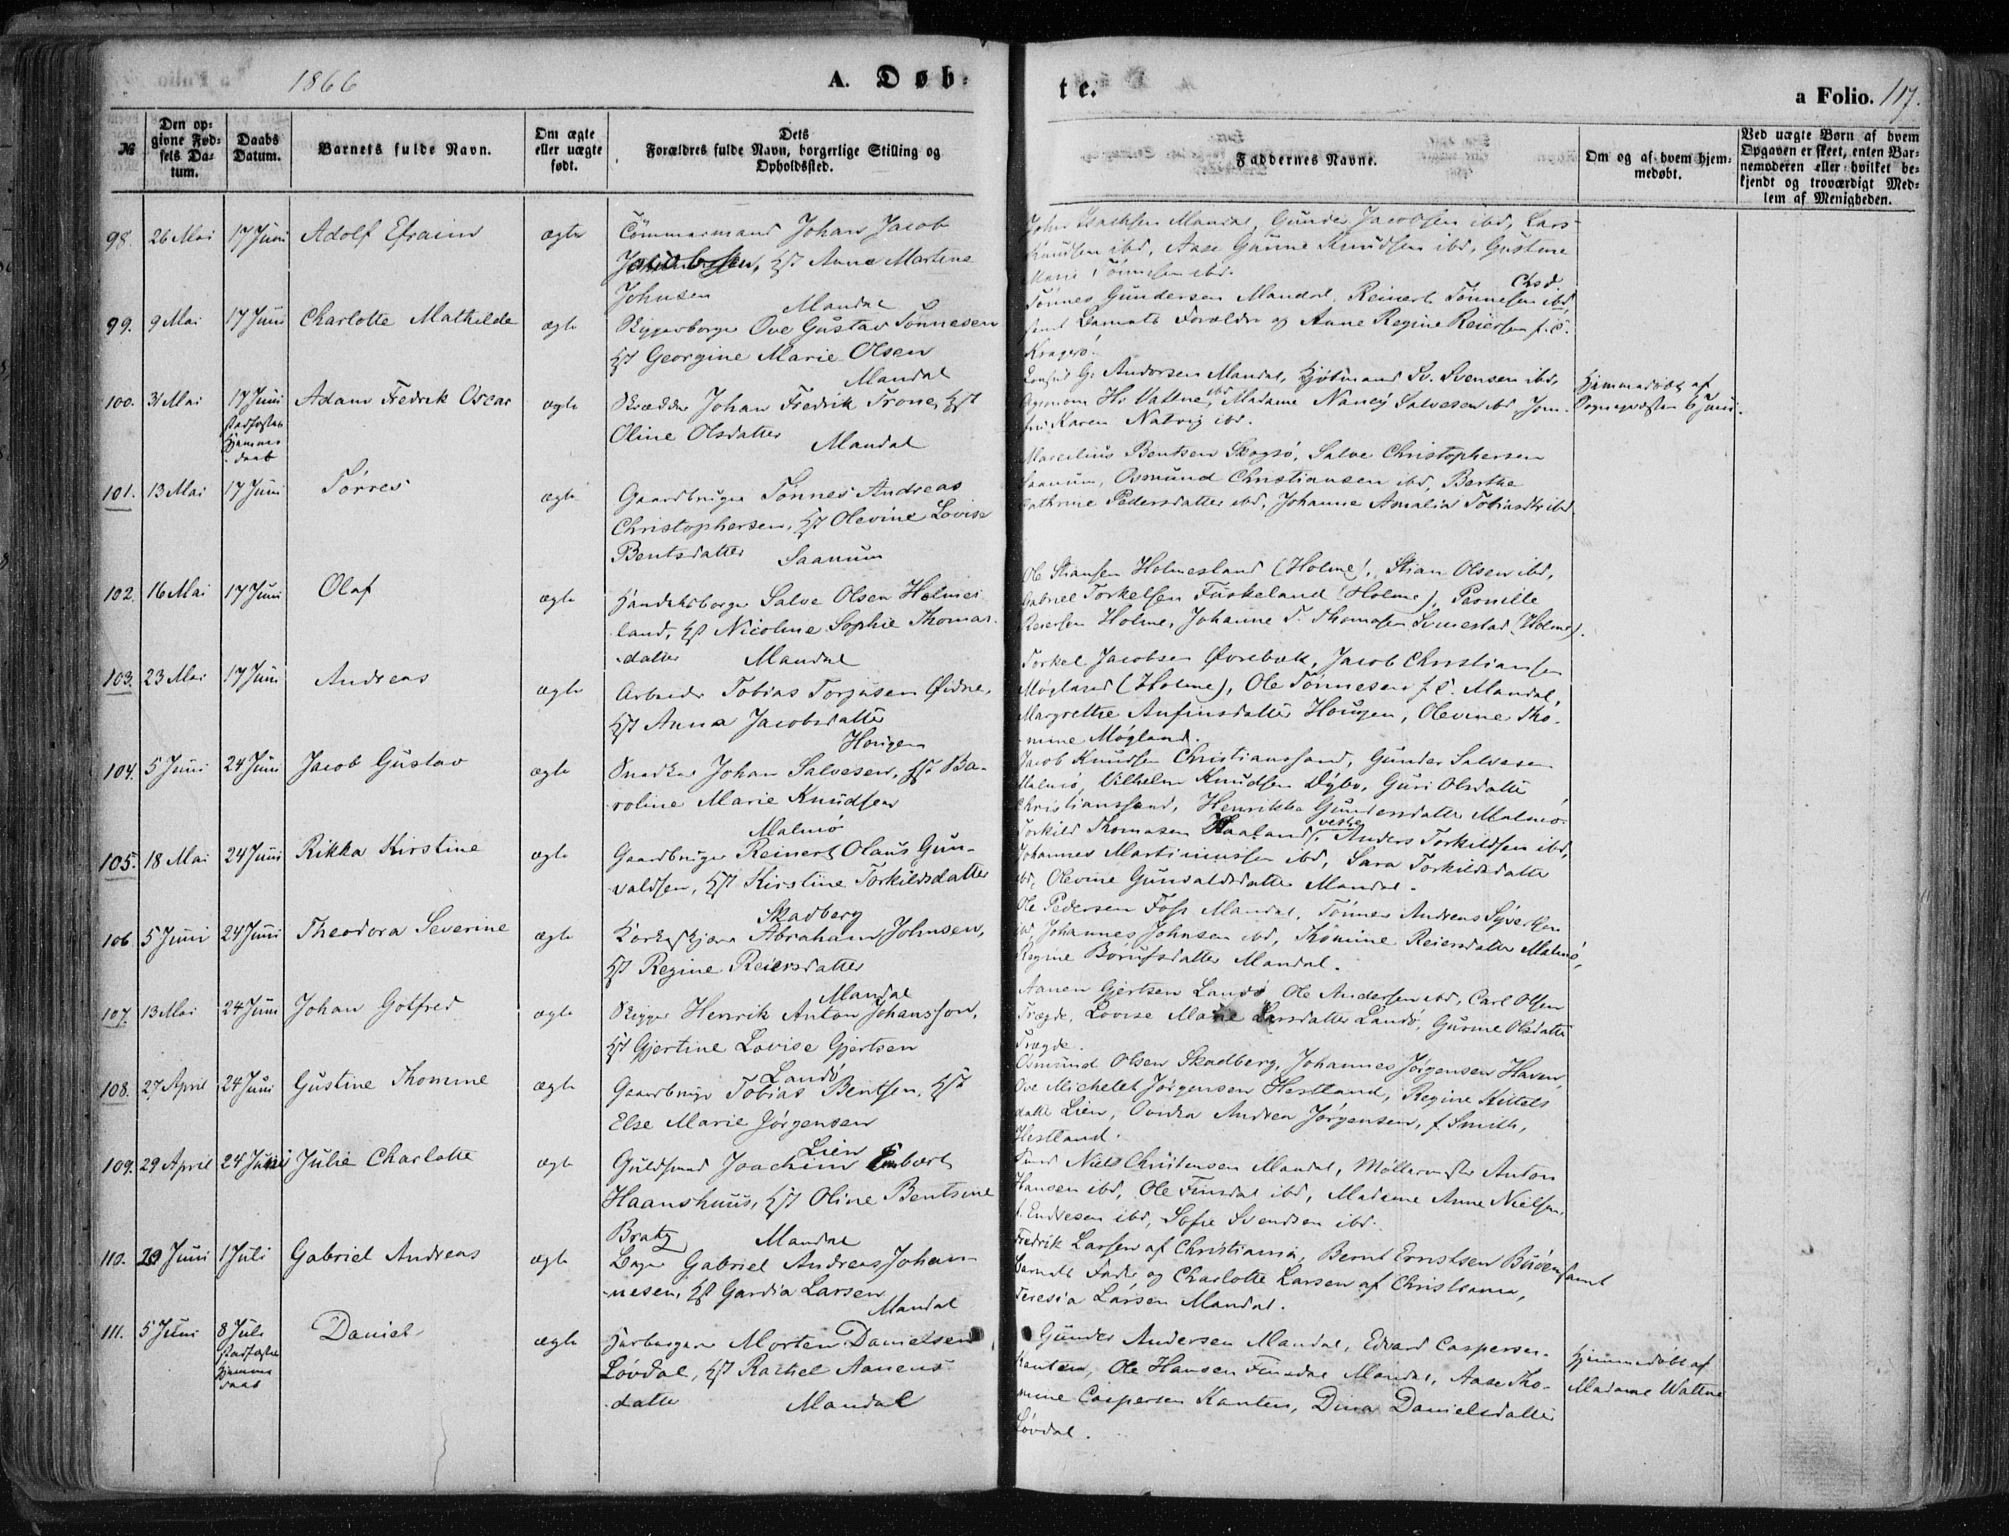 1866
A. Døb-
te.
a Folio. 117.
№
Den op-
givne Fød-
sels Da-
tum.
Daabs
Datum.
Barnets fulde Navn.
Om ægte
eller uægte
født.
Dets
Forældres fulde Navn, borgerlige Stilling og
Opholdssted.
Faddernes Navne.
Om og af hvem hjem-
medøbt.
Ved uægte Børn af hvem
Opgaven er skeet, enten Bar-
nemoderen eller hvilket be-
kjendt og troværdigt Med-
lem af Menigheden.
98. 26 Mai 17 Juni Adolf Efraim ægte Tømmermand Johan Jacob
Hst Anne Martine
Johnsen Mandal
John Isachsen Mandal, Gunder Jacobsen ibd, Lars
Knudsen ibd, Aase Gunne Knudsen ibd, Gustine
Marie Tönnesen ibd.
99. 9 Mai 17 Juni Charlotte Mathilde ægte Byggerborger Ove Gustav Tönnesen
Hst Georgine Marie Olsen
Mandal
Chsd.
Tönnes Gundersen Mandal, Reinert Tönnesen ibd,
samt Barnets Forældre og Anne Regine Reiersen f. E.
Kragerö.
100. 31 Mai 17 Juni
stadfæstet
Hjemme
daab
Adam Fredrik Oscar ægte Skrædder Johan Fredrik Trone, Hst
Oline Olsdatter Mandal
Consul G. Andorsen Mandal, Kjöbmand Sv. Svensen ibd,
Agronom H. Valtne ibd, Madame Nancy Salvesen ibd Jom-
fru Karen Natvig ibd.
Hjemmedøbt af
Sognepræsten 6 Juni.
101. 13 Mai 17 Juni Törres ægte Gaardbruger Tönnes Andreas
Christophersen, Hst Olevine Lovise
Bentsdatter Saanum
Marcelius Bentsen Skogsö, Salve Christophersen
Saanum, Osmund Christiansen ibd, Berthe
Cathrine Pedersdatter ibd, Johanne Amalia Tobiasdtr ibd.
102. 16 Mai 17 Juni Olaf ægte Handelsborger Salve Olsen Holmes-
land, Hst Nicoline Sophie Thomas-
datter Mandal
Ole Stiansen Holmesland (Holme), Stian Olsen ibd,
Gabriel Torkelsen Fuskeland (Holme), Pernille
Reiersen Holme, Johanne T. Thomasen Svinestad (Holme).
103. 23 Mai 17 Juni Andreas ægte Arbeider Tobias Torjusen Øidne,
Hst Anna Jacobsdatter
Hougen
Torkel Jacobsen Øvrebæk, Jacob Christiansen
Møgland (Holme), Ole Tönnesen f. E. Mandal,
Margrethe Anfinsdatter Hougen, Olevine Tho-
mine Møgland.
104. 5 Juni 24 Juni Jacob Gustav ægte Snedker Johan Salvesen, Hst Ba-
roline Marie Knudsen
Malmö
Jacob Knudsen Christianssand, Gunder Salvesen
Malmö, Vilhelm Knudsen Dybo, Guri Olsdatter
Christianssand, Henrikke Gundersdatter Malmö.
105. 18 Mai 24 Juni Rikka Kirstine ægte Gaardbruger Reinert Olaus Gun-
valdsen, Hst Kirstine Torkildsdatter
Skadberg
Torkild Thomasen Haaland vestre, Anders Torkildsen ibd,
Johannes Martinussen ibd, Sara Torkildsdatter
ibd, Olevine Gunvaldsdatter Mandal.
106. 5 Juni 24 Juni Theodora Severine ægte Abraham Johnsen,
Hst Regine Reiersdatter
Mandal
Ole Pedersen Foss Mandal, Tönnes Andreas Syvertsen
ibd, Johannes Johnsen ibd, Thomine Reiersdatter Malmö,
Regine Börufsdatter Mandal.
107. 13 Mai 24 Juni Johan Gotfred ægte Rigger Henrik Anton Johansson,
Hst Gjertine Lovise Gjertsen
Landö
Aanen Gjertsen Landö, Ole Andersen ibd, Carl Olsen
Trægde, Lovise Marie Larsdatter Landö, Gurine Olsdatter
Trægde.
108. 27 April 24 Juni Gustine Thomine ægte Gaardbruger Tobias Bentsen, Hst
Else Marie Jörgensen
Lien
Osmund Olsen Skadberg, Johannes Jörgensen Haven,
Ove Michelet Jörgensen Hestland, Regine Kittels
datter Lien, Ovidia Andrea Jörgensen, f. Smith,
Hestland.
109. 29 April 24 Juni Julie Charlotte ægte Guldsmed Joachim Embert
Haanshuus, Hst Oline Bentsine
Bratz Mandal
Smed Niels Christensen Mandal, Møllermester Anton
Hansen ibd, Ole Finsdal ibd, Madame Anne Nielsen,
f. Endresen ibd, Sofie Svendsen ibd.
110. 20 Juni 1 Juli Gabriel Andreas ægte Bager Gabriel Andreas Johan-
nesen, Hst Gardia Larsen
Mandal
Fredrik Larsen af Christiania, Bernt Ernstsen Buöen, samt
Barnets Fader og Charlotte Larsen af Christiania,
Teresia Larsen Mandal.
111. 5 Juni 8 Juli
stadfæstet
Hjemme
daab
Daniel ægte Morten Danielsen
Lövdal, Hst Rachel Aanens-
datter Mandal
Gunder Andersen Mandal, Edvard Caspersen
Kanten, Ole Hansen Finsdal Mandal, Aase Tho-
mine Caspersen Kanten, Dina Danielsdatter
Lövdal.
Hjemmedøbt af
Madame Wattne